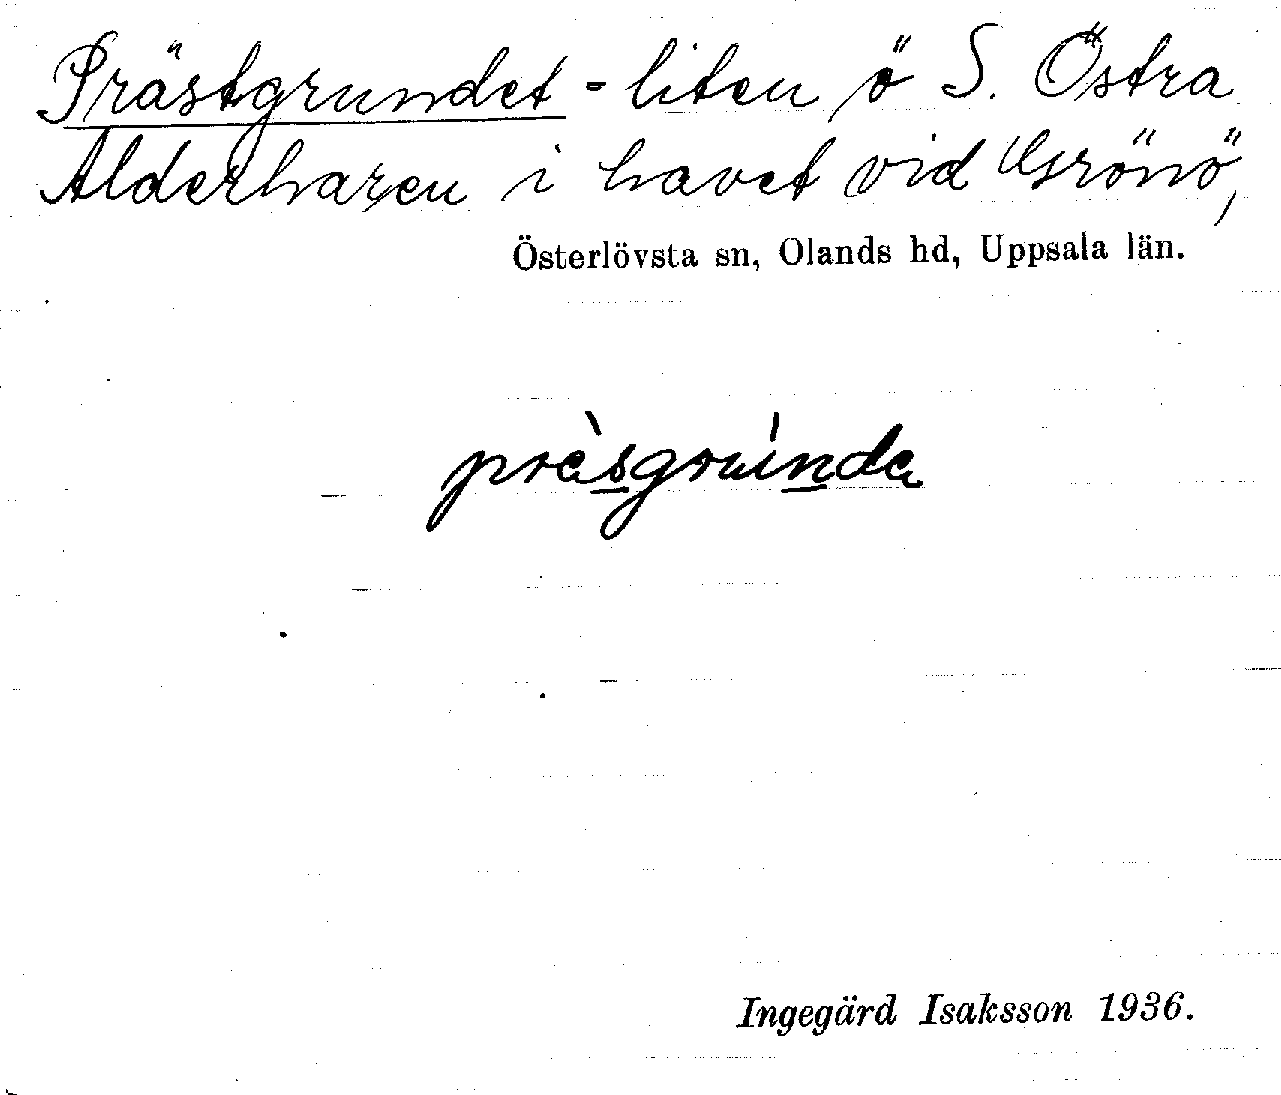 Prästgrundet - liten ö S. Östra
Alderharen i havet vid Grönö,
Österlövsta sn, Olands hd, Uppsala län.
prèsgrúnda
Ingegärd Isaksson 1936.